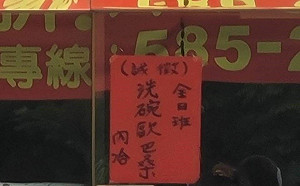 專線:585-2
(誠徵)
全日班
洗碗歐巴桑
內洽